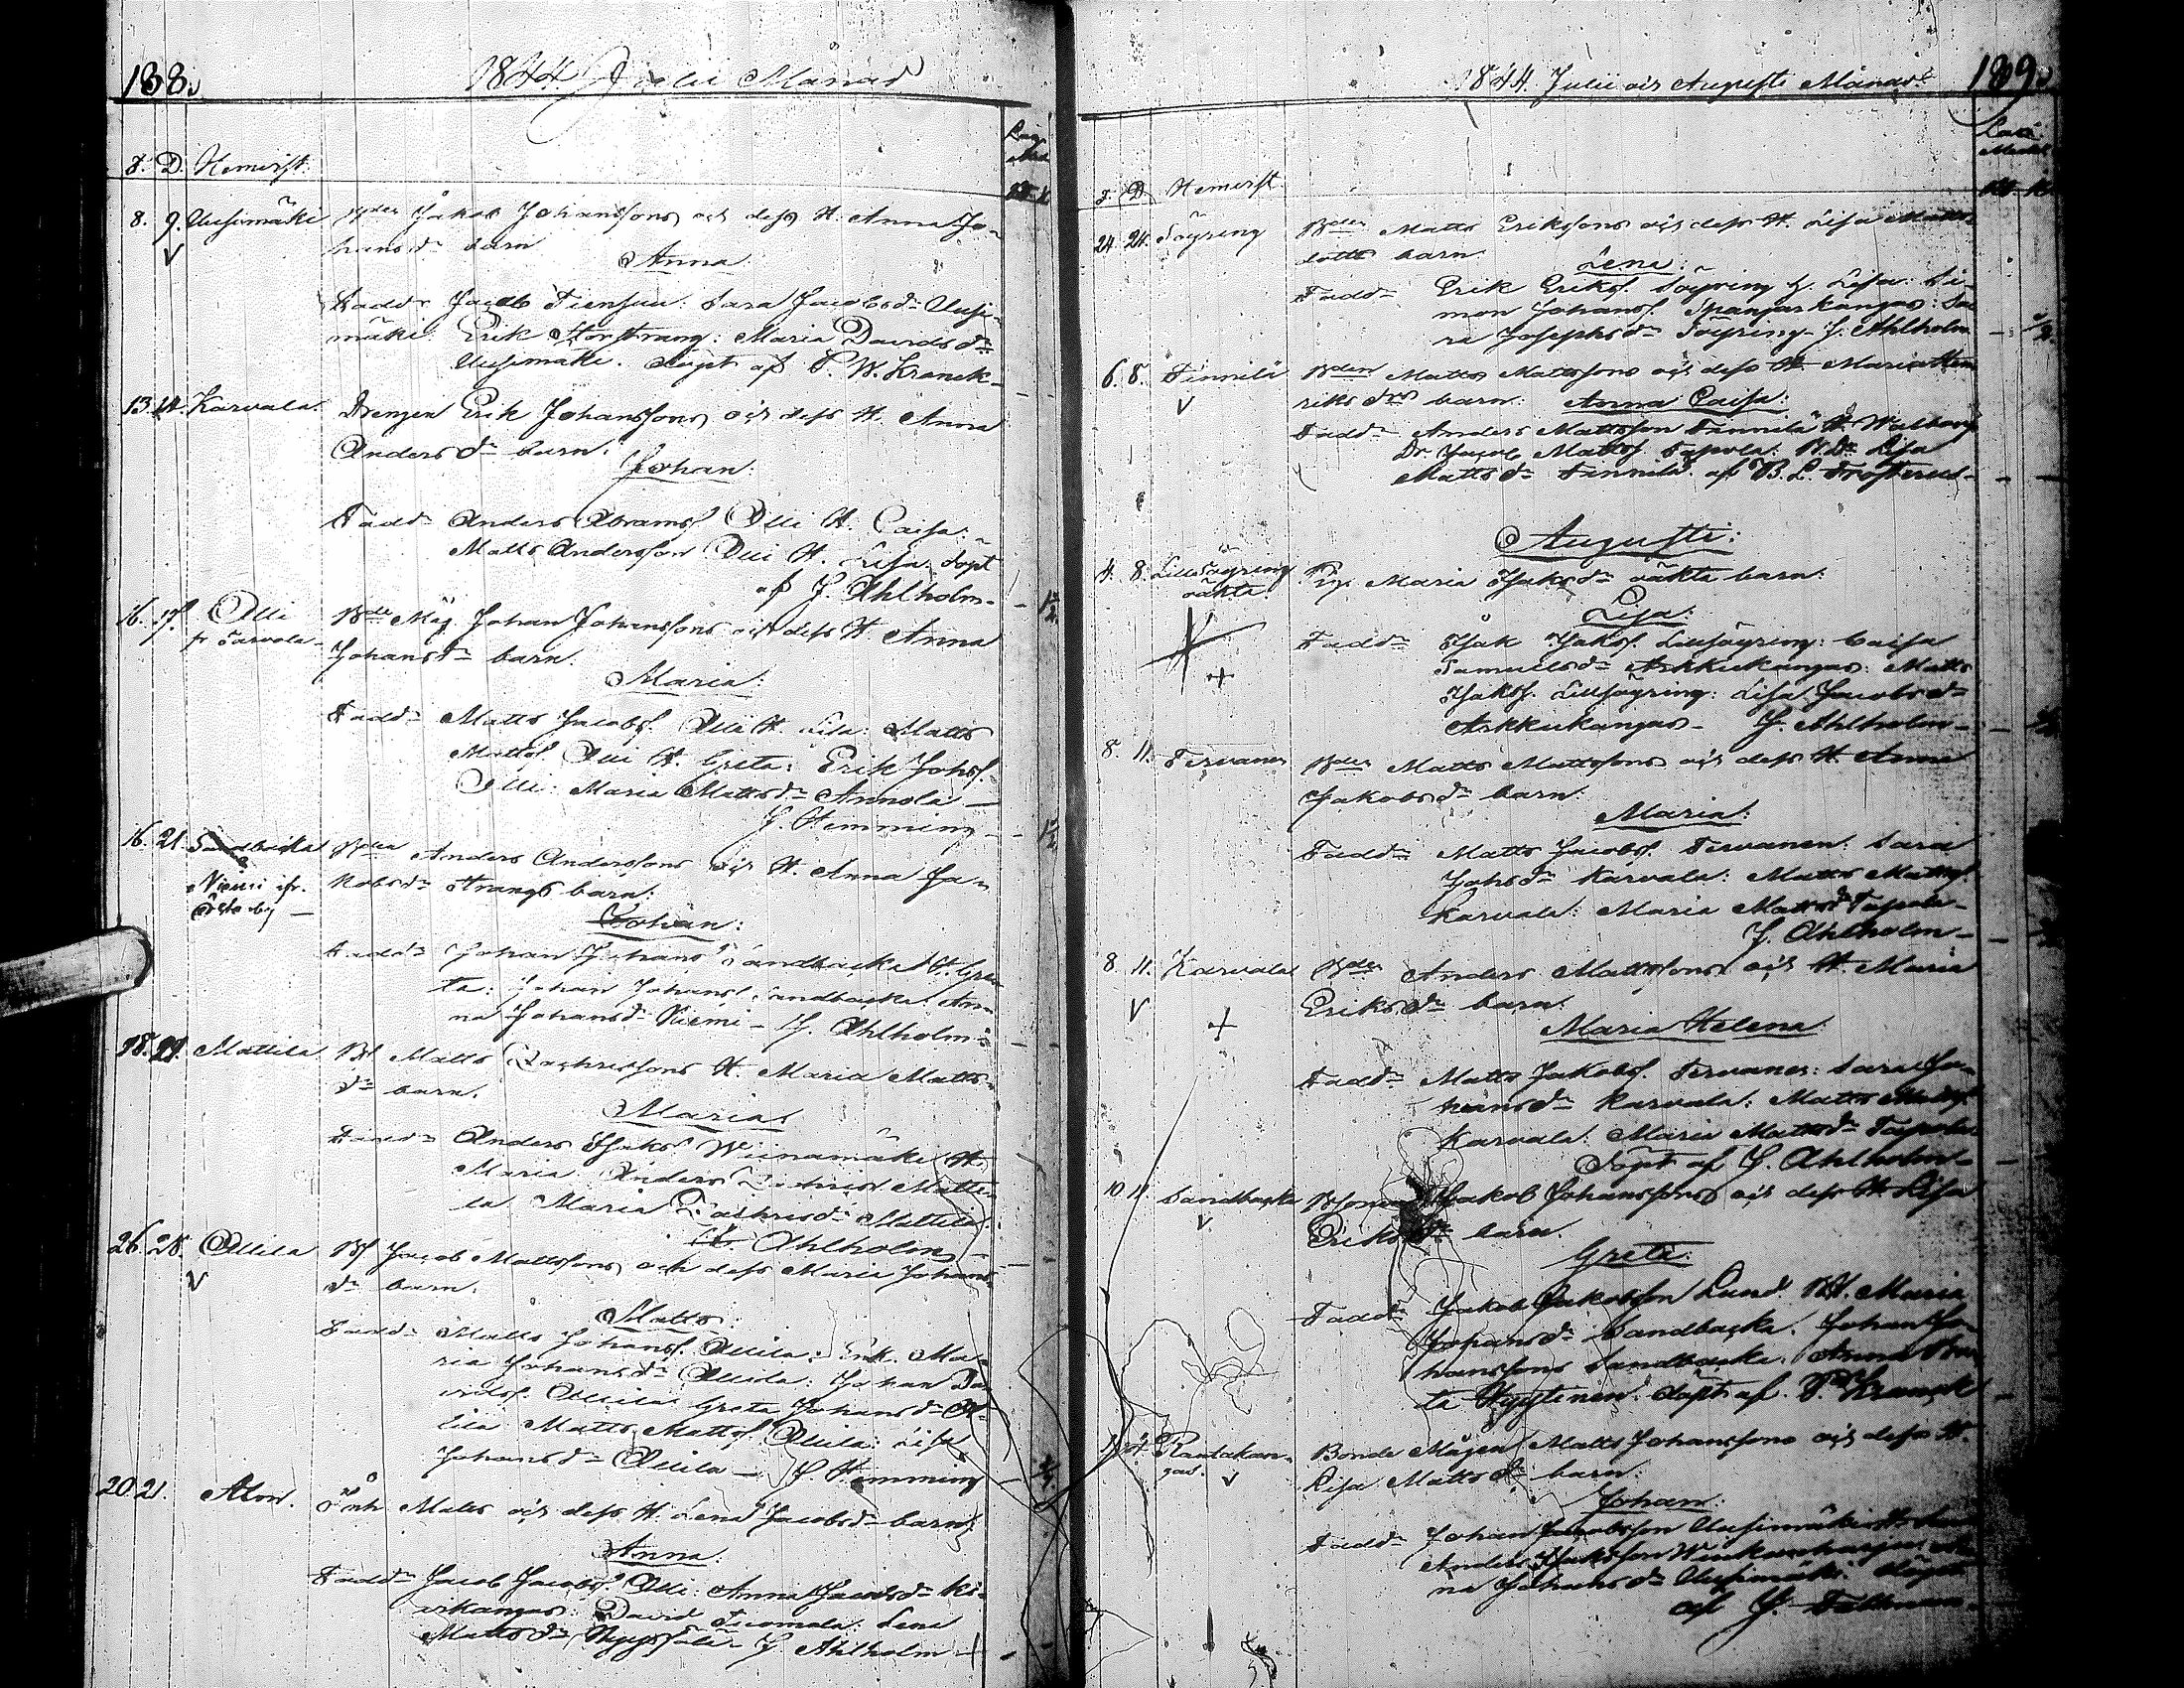 188.
1844 Julii Månad
F. D. Hemvist.
8. 9. Uusimäki Bden Jakob Johanssons och dess H. Anna Jo-
hans dr barn
Anna
Fadd. Jacob Tiensuu: Sara Jacobsdr Uusi-
mäki: Erik Storstrang: Maria Davidsdr
Uusimäki. Döpt af P. W. Kranck
13. 14. Karvala. Drengen Erik Johanssons och dess H. Anna
Anders dr barn.
Johan:
Fadd. Anders Abramss. Olli H. Caisa:
Matts Andersson Olli H. Lisa. Döpt
af J. Ahlholm
16. 17. Olli Bde Måg. Johan Johanssons och dess H. Anna
Johans dr barn.
Maria:
Fadd. Matts Jacobs. Olli H. Lisa: Matts
Matts. Olli H. Greta: Erik Johs.
Olli: Maria Mattsdr Annola
J. Hemming
16. 21. Sandbacka Anders Anderssons och H. Anna Ja-
Niemi ifr. kobsdr Strangs barn:
Österby
Johan:
Fadd. Johan Johans. Sandbacka H. Gre-
ta: Johan Johans. Sandbacka: An-
na Johansdr Niemi - J. Ahlholm
18. 21. Mattila Matts Zachrissons H. Maria Matts-
dr barn.
Maria
Fadd. Anders Isaks. Wiinamäki H.
Maria Anders Zachriss. Matti-
la Maria Zachrisdr Mattila
Ahlholm
26. 28. Ollila Jacob Mattssons och dess Maria Johans-
dr barn.
Matts:
Fadd. Matts Johans. Ollila: Enk. Ma-
ria Johansdr Ollila: Johan Da-
vids. Ollila Greta Johansdr Ol-
lila Matts Matts. Ollila: Lisa
Johansdr Ollila - J. Hemming
20. 21. Matts och dess H. Lena Jacobsdr barn:
Anna:
Fadd. Jacob Jacobs. Olli: Anna Jacobsdr Ki-
virkangas: David Tuomala: Lena
Mattsdr - J. Ahlholm
189.
1844. Julii och Augusti Månad.
F. D. Hemvist
24. 24. Söyring Bden Matts Erikssons och dess H. Lisa Matts-
dotts barn
Lena:
Fadd. Erik Eriks. Söyring H. Lisa: Si-
mon Johans. Spångarkangas: Sa-
ra Josephsdr Söyring - J. Ahlholm
6. 8. Finnilä Bden Matts Mattssons och dess H. Maria Hen-
riks drs barn: Anna Caisa:
Fadd. Anders Mattsson Finnilä H. Walborg
Dr. Jacob Matts. Tapola: Lisa
Mattsdr Finnilä. af B. L. Frosterus
Augusti:
4. 8. Lillsöyring Pig. Maria Isaksdr oäkta barn:
oäkta.
Lisa:
Fadd. Isak Isaks. Lillsöyring: Caisa
Samuelsdr Arkkukangas: Matts
Isaks. Lillsöyring: Lisa Jacobsdr
Arkkukangas - J. Ahlholm
8. 11. Tervanen Bden Matts Mattssons och dess H. Anna
Jakobsdr barn:
Maria:
Fadd. Matts Jacobs. Tervanen: Sara
Johsdr Karvala: Matts Matts.
Karvala: Maria Mattsdr Tapola
J. Ahlholm
8. 11. Karvala Bden Anders Mattssons och H. Maria
Eriksdr barn:
Maria Helena
Fadd. Matts Jakobs. Tervanen: Sara Jo-
hansdr Karvala: Matts Matts.
Karvala: Maria Mattsdr Tapola
Döpt af J. Ahlholm
10. Sandbacka Jakob Johanssons och dess H. Lisa
Eriksdr barn.
Greta:
Fadd. Jakob Jakobsson Lund. Maria
Johansdr Sandbacka. Johan Jo-
hanssons Sandbacka. Anna
Hyytinen. döpt af Kranck
Rantakan- Bonde Mågen Matts Johanssons och dess H.
gas. Lisa Mattsdr barn:
Johan:
Fadd. Johan Jacobsson Uusimäki
Anders Isaksson
na Johansdr Uusimäki döpt
af J.